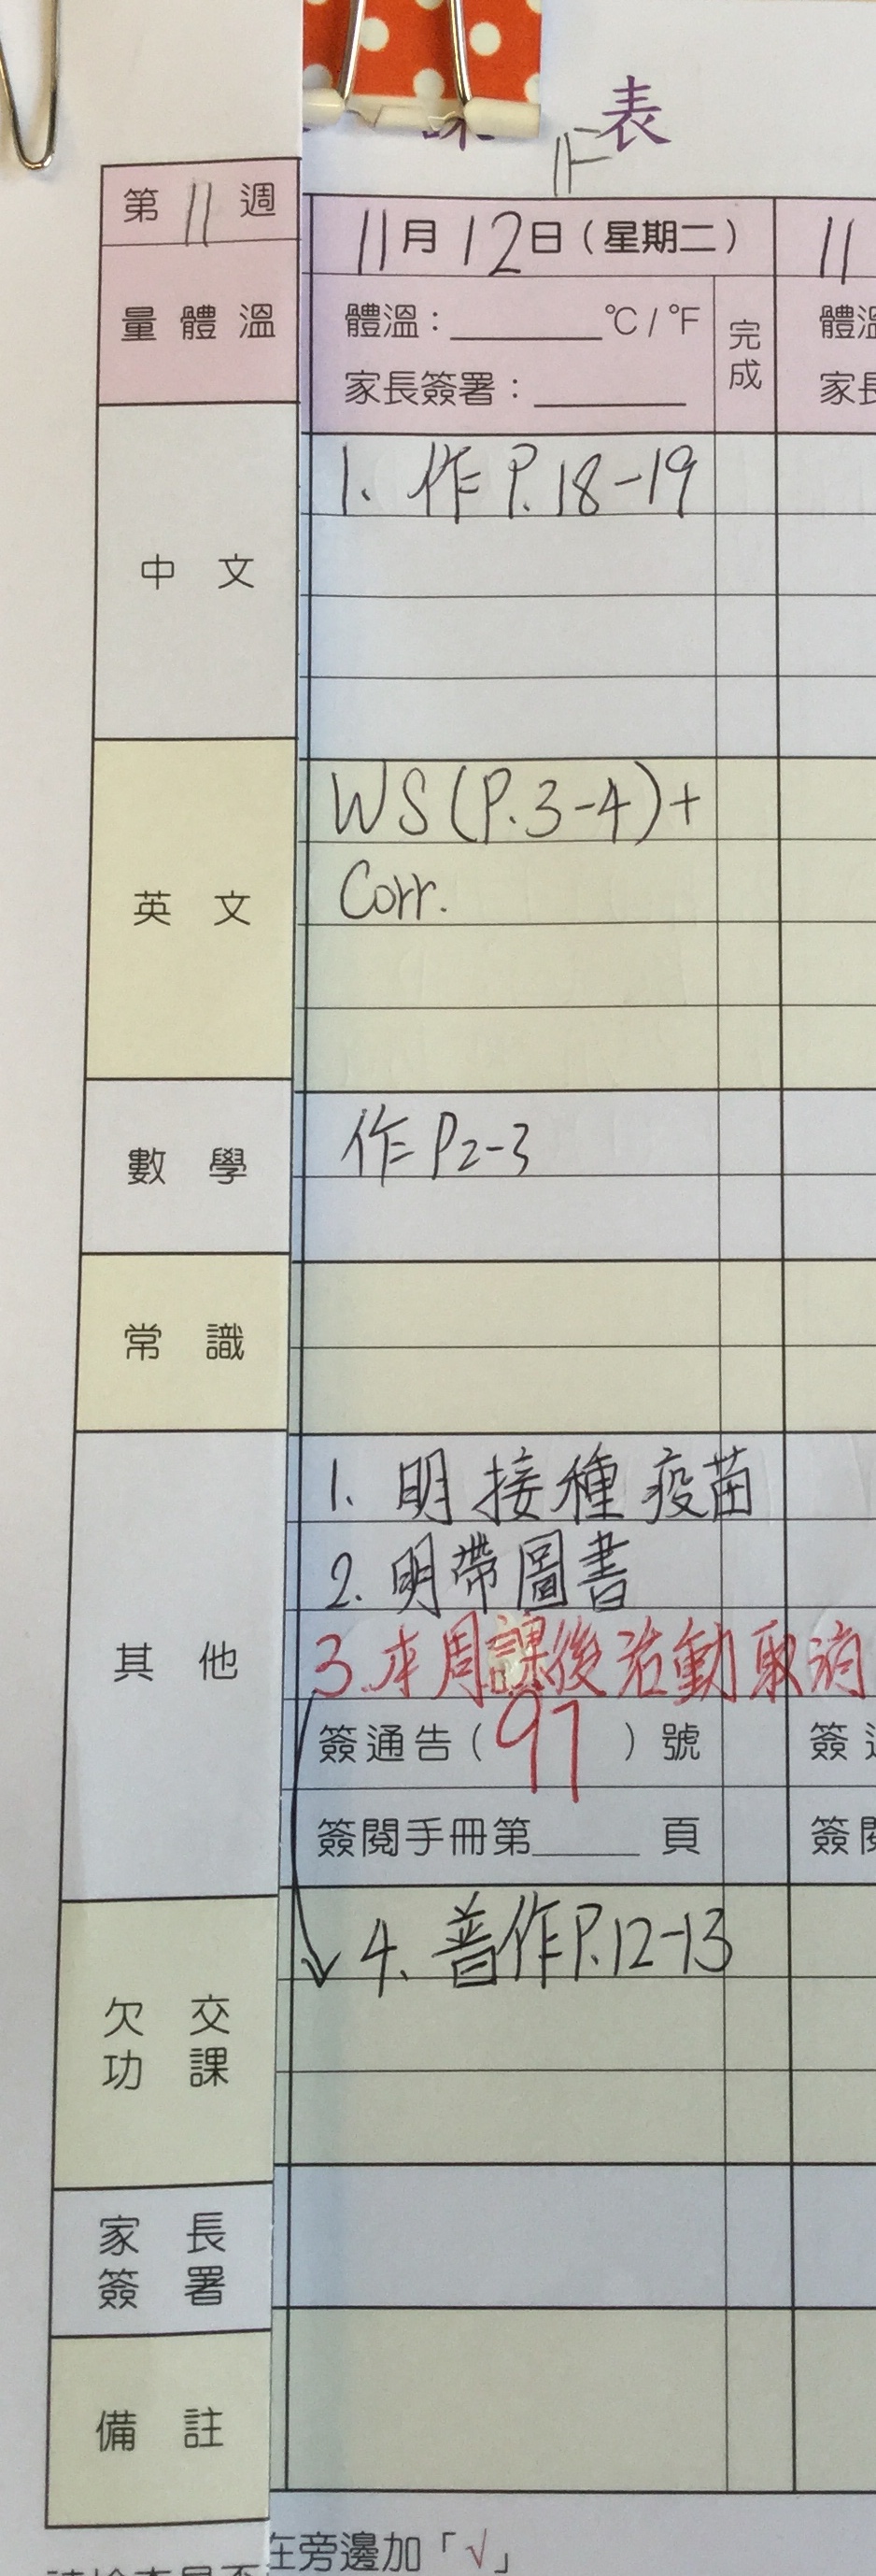 表
1F
第 11 週
11月12日(星期二)
11
量體溫
體溫：______°C / °F
完成
體溫
家長簽署：______
家長
中文
1. 作 P.18-19
英文
WS (P.3-4) +
Corr.
數學
作 P2-3
常識
其他
1. 明接種疫苗
2. 明帶圖書
3. 本周課後活動取消
簽通告(97)號
簽通
簽閱手冊第______頁
簽閱
欠交功課
4. 普作 P.12-13
家長簽署
備註
在旁邊加「√」